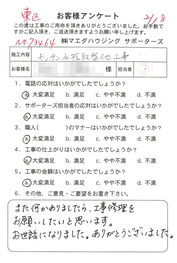 東区
21/8
お客様アンケート
No 73464
この度は工事のご用命を頂きありがとうございました。お手数で
すがご記入頂き、ご返送頂きますようお願い申し上げます。
㈱マエダハウジング サポーターズ
施工内容
キッチン水栓取替他工事
お名前
様
担当者
1. 電話の対応はいかがでしたでしょうか?
大変満足 B. 満足 C. やや不満 D. 不満
2. サポーターズ担当者の対応はいかがでしたでしょうか?
大変満足 B. 満足 C. やや不満 D. 不満
3. 職人( )のマナーはいかがでしたでしょうか?
大変満足 B. 満足 C. やや不満 D. 不満
4. 工事の品質はいかがでしたでしょうか?
大変満足 B. 満足 C. やや不満 D. 不満
5. 工事の満足はいかがでしたでしょうか?
大変満足 B. 満足 C. やや不満 D. 不満
6. その他、ご意見・ご要望をお書き下さい。
また何かありましたら、工事修理を
お願いしたいと思います。
お世話になりました。ありがとうございました。